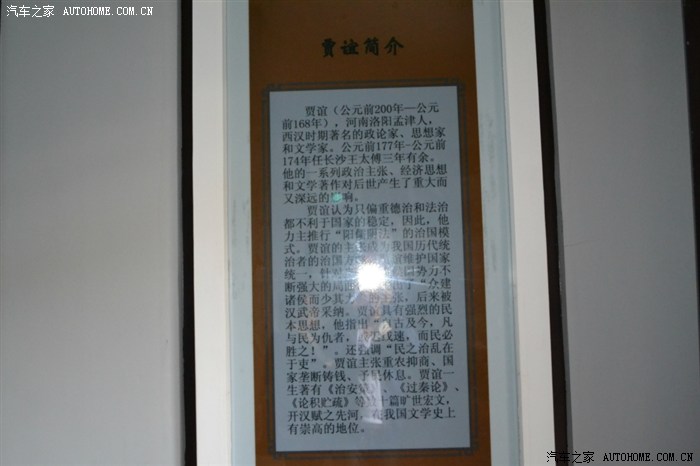 汽车之家 AUTOHOME.COM.CN
贾谊简介
贾谊（公元前200年—公元
前168年），河南洛阳孟津人，
西汉时期著名的政论家、思想家
和文学家。公元前177年-公元前
174年任长沙王太傅三年有余。
他的一系列政治主张、经济思想
和文学著作对后世产生了重大而
又深远的影响。
贾谊认为只偏重德治和法治
都不利于国家的稳定，因此，他
力主推行“阳儒阴法”的治国模
式。贾谊的主 成为我国历代统
治者的治国方 维护国家
统一，针 势力不
断强大的局 了“众建
诸侯而少其力 的主张，后来被
汉武帝采纳。贾谊具有强烈的民
本思想，他指出“ 古及今，凡
与民为仇者， 速，而民必
胜之！”。还强调“民之治乱在
于吏”。贾谊主张重农抑商、国
家垄断铸钱、 民休息。贾谊一
生著有《治安 》、《过秦论》、
《论积贮疏》等 十篇旷世宏文，
开汉赋之先河，在我国文学史上
有崇高的地位。
汽车之家 AUTOHOME.COM.CN